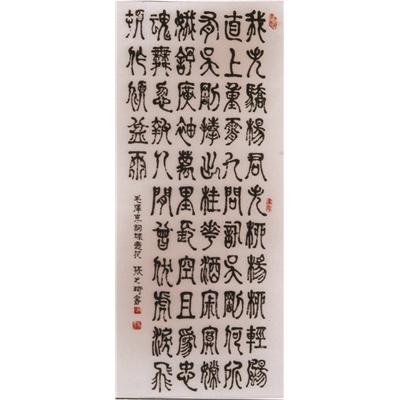 我失驕楊君失柳楊柳輕颺
直上重霄九問訊吳剛何所
有吳剛捧出桂華酒寂寞嫦
娥舒廣袖萬里長空且為忠
魂舞忽報人間曾伏虎淚飛
頓作傾盆雨
毛澤東詞蝶戀花 張之書